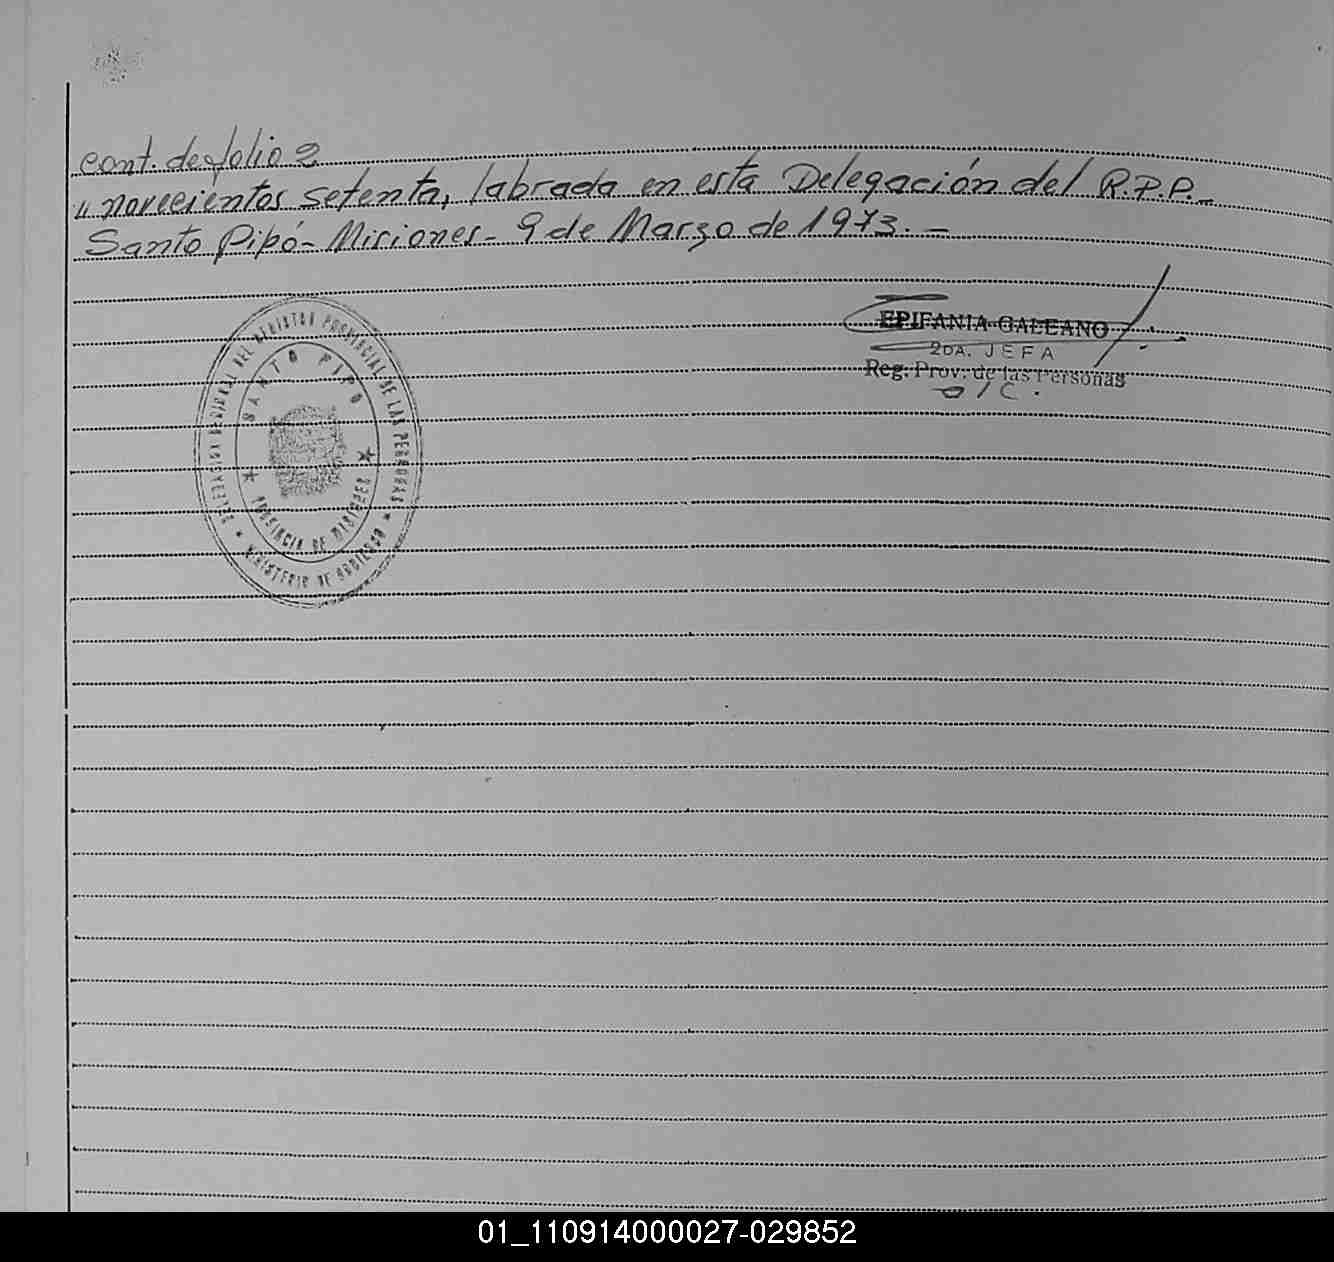 cont. de folio 2
" novecientos setenta, labrada en esta Delegación del R.P.P.-
Santo Pipó - Misiones - 9 de Marzo de 1973. -
DELEGACION REGIONAL DEL REGISTRO PROVINCIAL DE LAS PERSONAS
SANTO PIPO
PROVINCIA DE MISIONES
MINISTERIO DE GOBIERNO
EPIFANIA GALEANO
2DA. JEFA
Reg. Prov. de las Personas
01_110914000027-029852